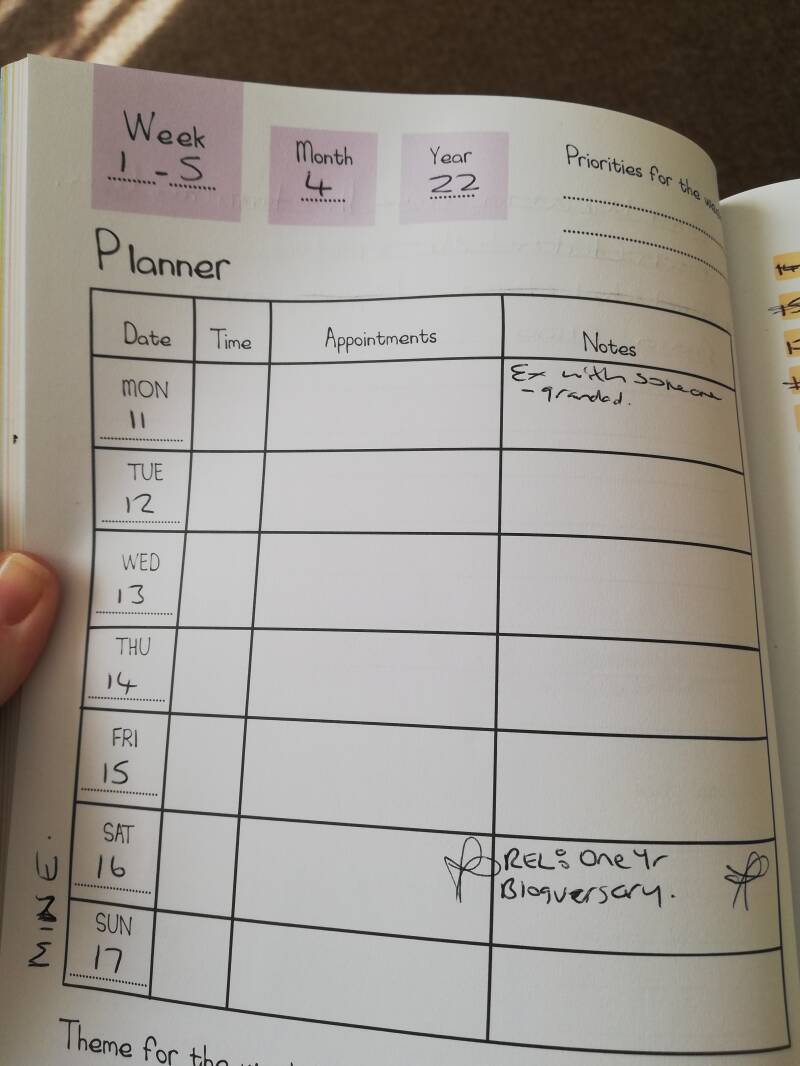 Week
1 - 5
Month
4
Year
22
Priorities for the
Planner
Date Time Appointments Notes
MON
11
Ex with someone
- grandad.
TUE
12
WED
13
THU
14
FRI
15
SAT
16
REL: One Yr
Blogversary.
SUN
17
MINE.
Theme for the